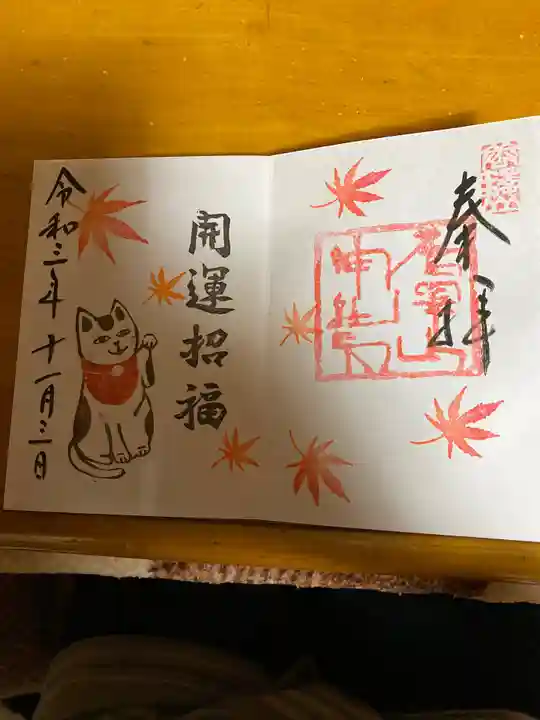 奉拝
神社
開運招福
令和三年十一月三日